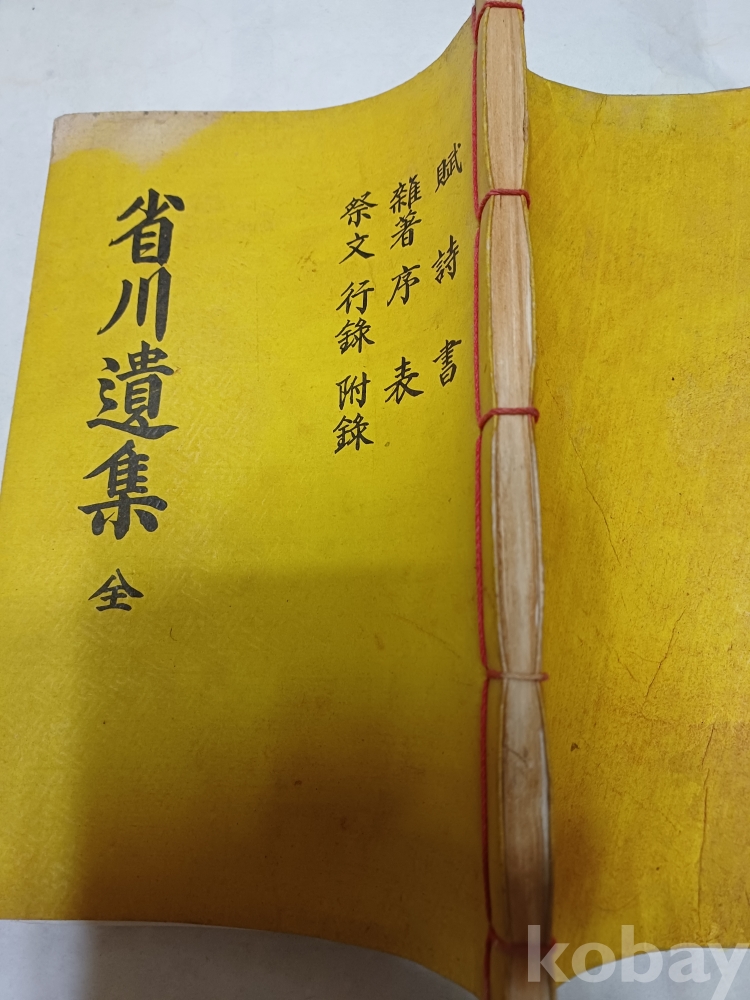 賦 詩 書
雜著 序 表
祭文 行錄 附錄
省川遺集 全
kobay